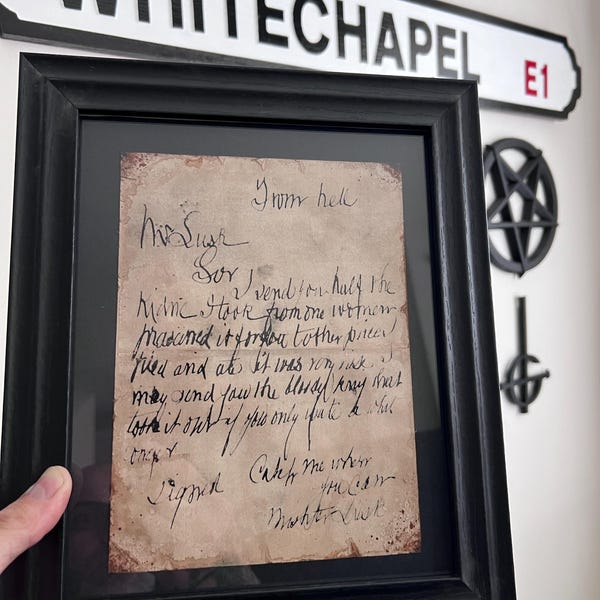 WHITECHAPEL E1
From hell
Mr Lusk
Sor
I send you half the
Kidne I took from one women
prasarved it for you tother piece I
fried and ate it was very nise. I
may send you the bloody knif that
took it out if you only wate a whil
longer
signed Catch me when
you Can
Mishter Lusk